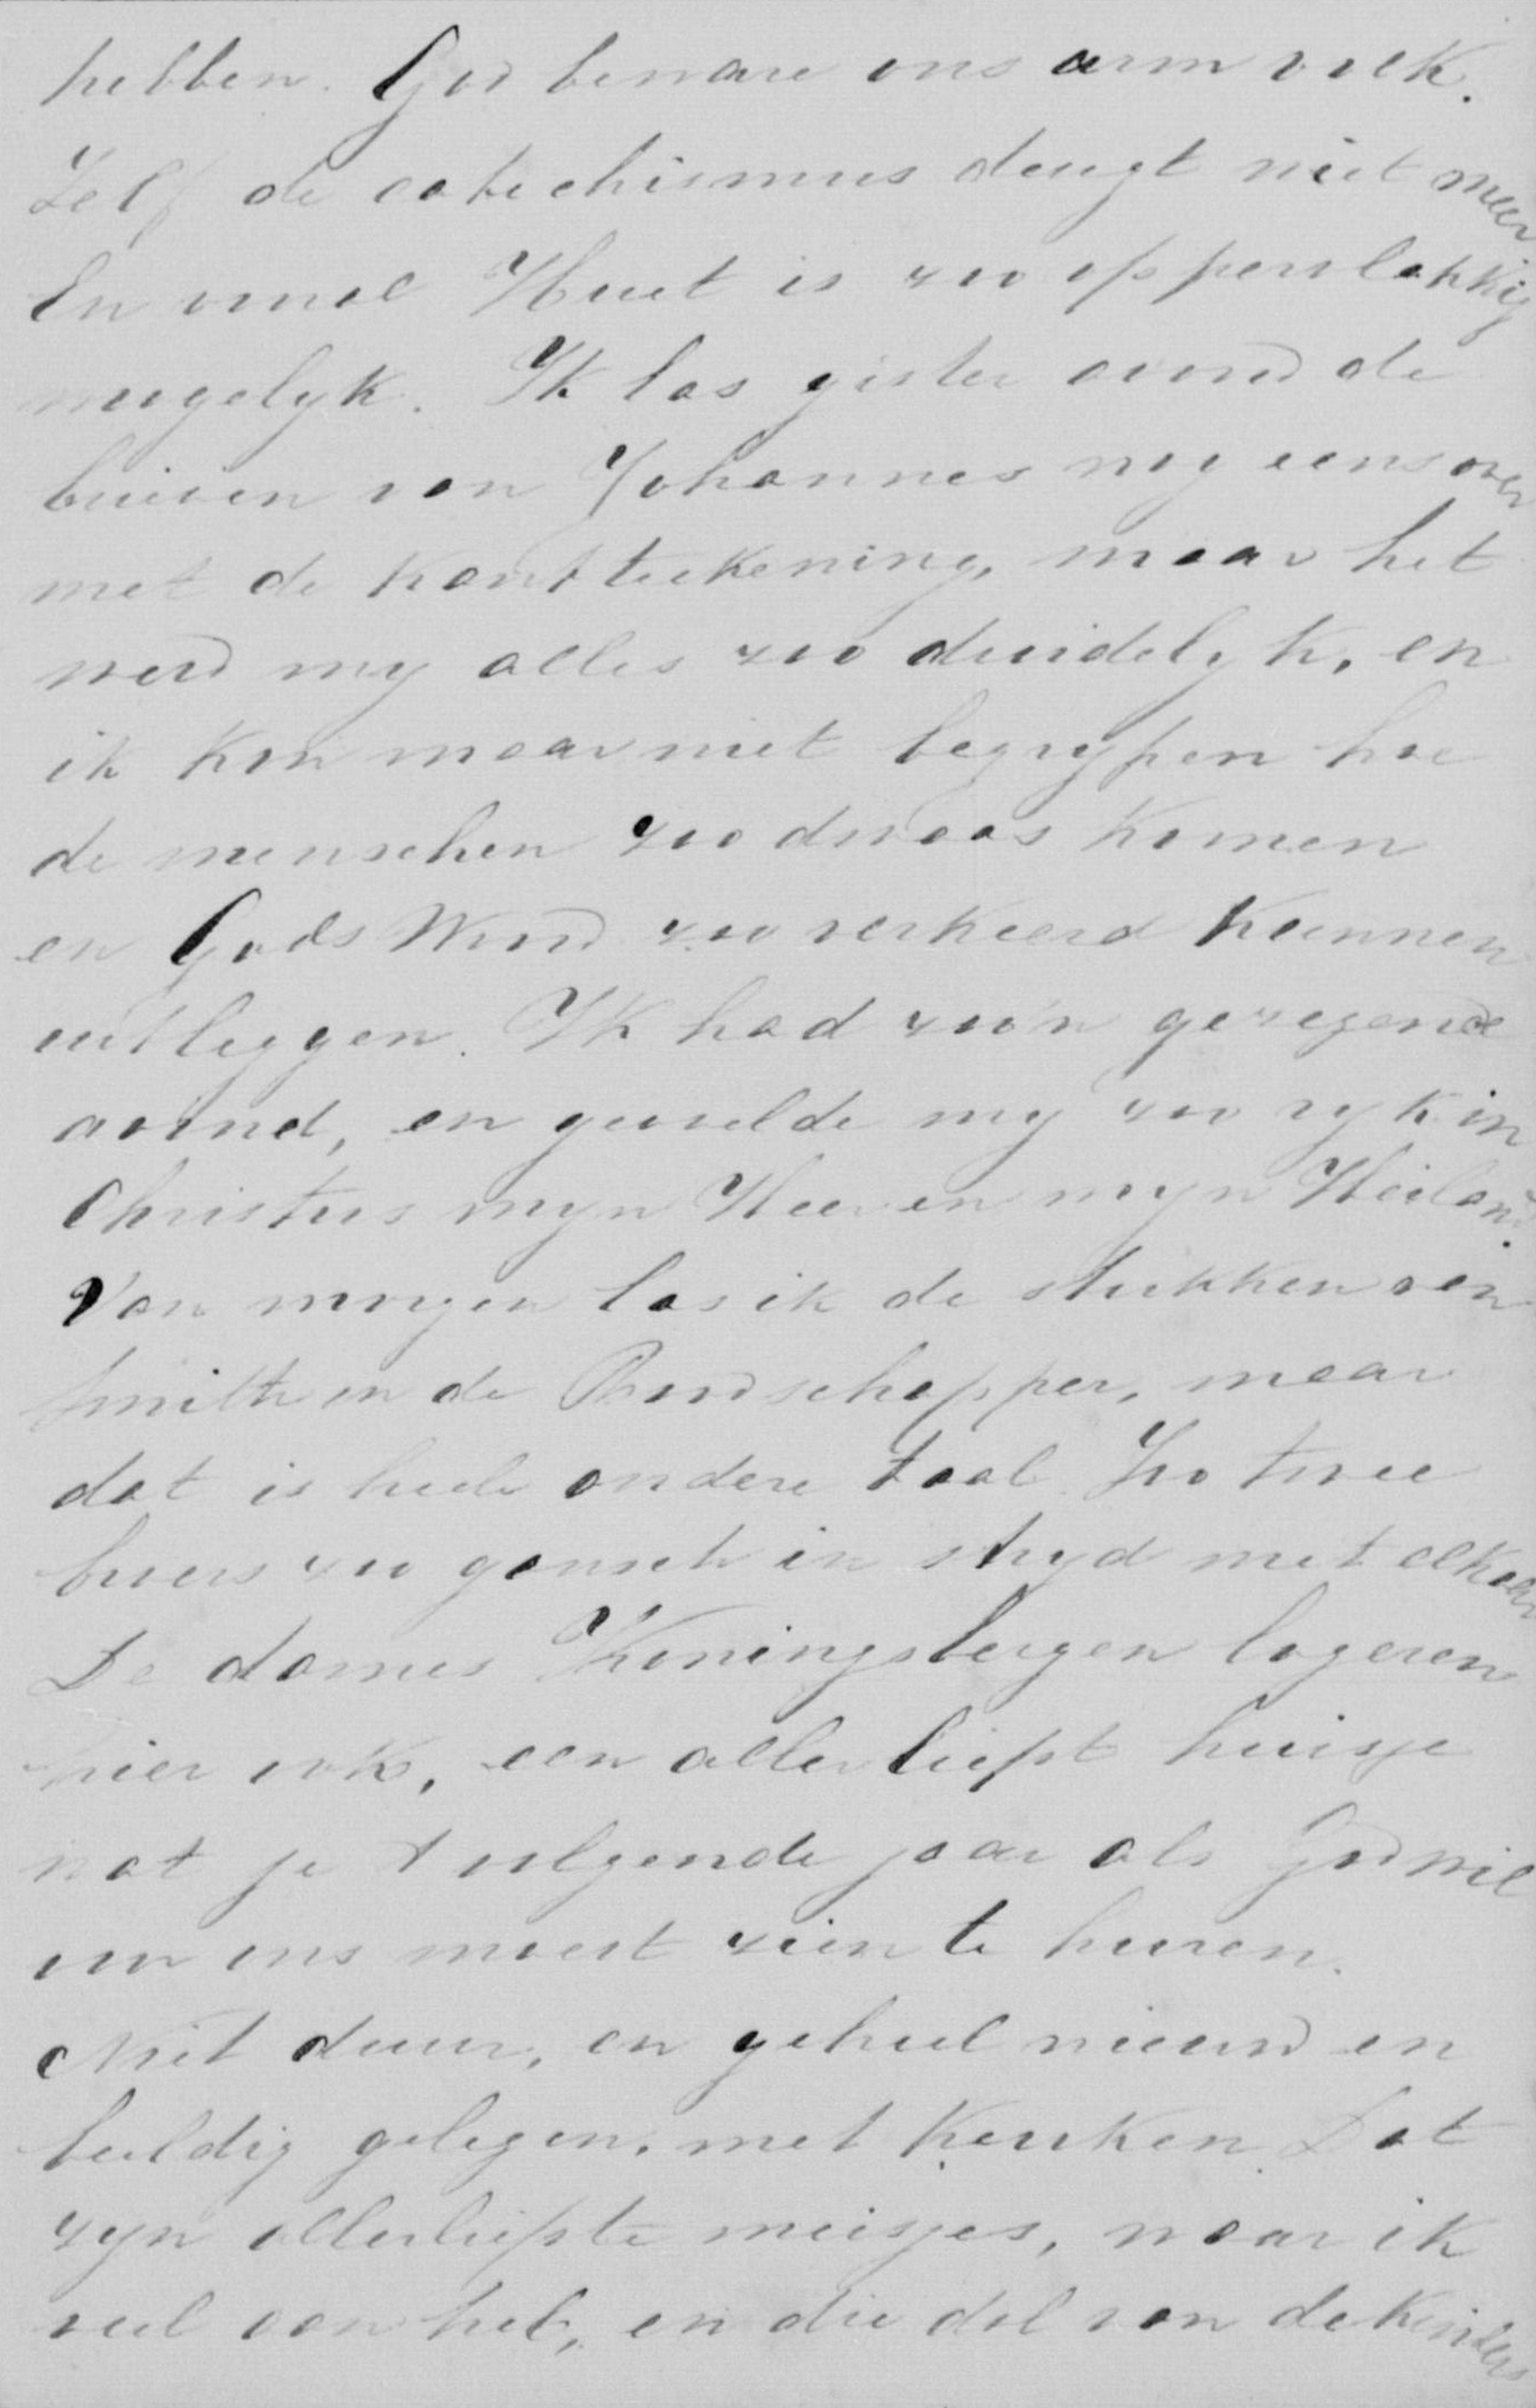 hebben. God beware ons arm volk.
Zelf de catechismus deugt niet meer
En vooral Huet is zoo oppervlakkig
mogelyk. Ik las gister avond de
brieven van Johannes nog eens over
met de kantteekening, maar het
werd my alles zoo duidelyk, en
ik kon maar niet begrypen hoe
de menschen zoo dwaas komen
en Gods Woord zoo verkeerd kunnen
uitleggen. Ik had zoo'n gezegende
avond, en gevoelde my zoo ryk in
Christus myn Heer en myn Heiland.
Van morgen las ik de stukken van
Smith in de Boodschapper, maar
dat is heele andere taal. Zoo twee
broers zoo gansch in stryd met elkaer
De dames Koningsbergen logeren
hier ook, een allerliefst huisje
wat je t volgende jaar als God wil
voor ons moest zien te huren.
Niet duur, en geheel nieuw en
beeldig gelegen, met keuken. Dat
zyn allerliefste meisjes, waar ik
veel van heb, en die dol van de kinders